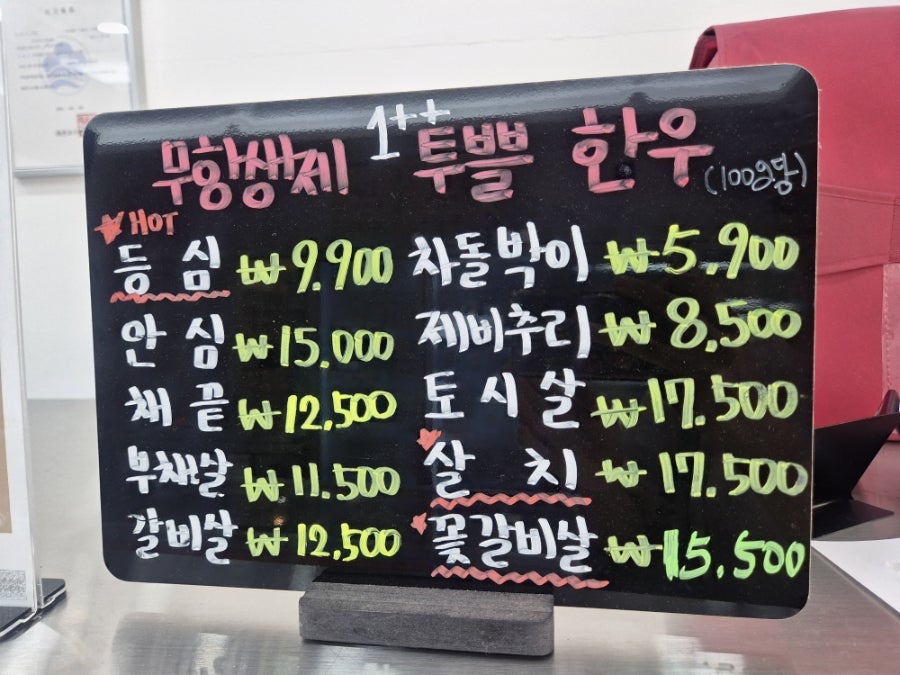 1++
무항생제 투쁠 한우 (100g당)
HOT
등심 ₩9.900 차돌박이 ₩5,900
안심 ₩15.000 제비추리 ₩8,500
채끝 ₩12,500 토시살 ₩17.500
부채살 ₩11.500 살치 ₩17.500
갈비살 ₩12,500 꽃갈비살 ₩15.500